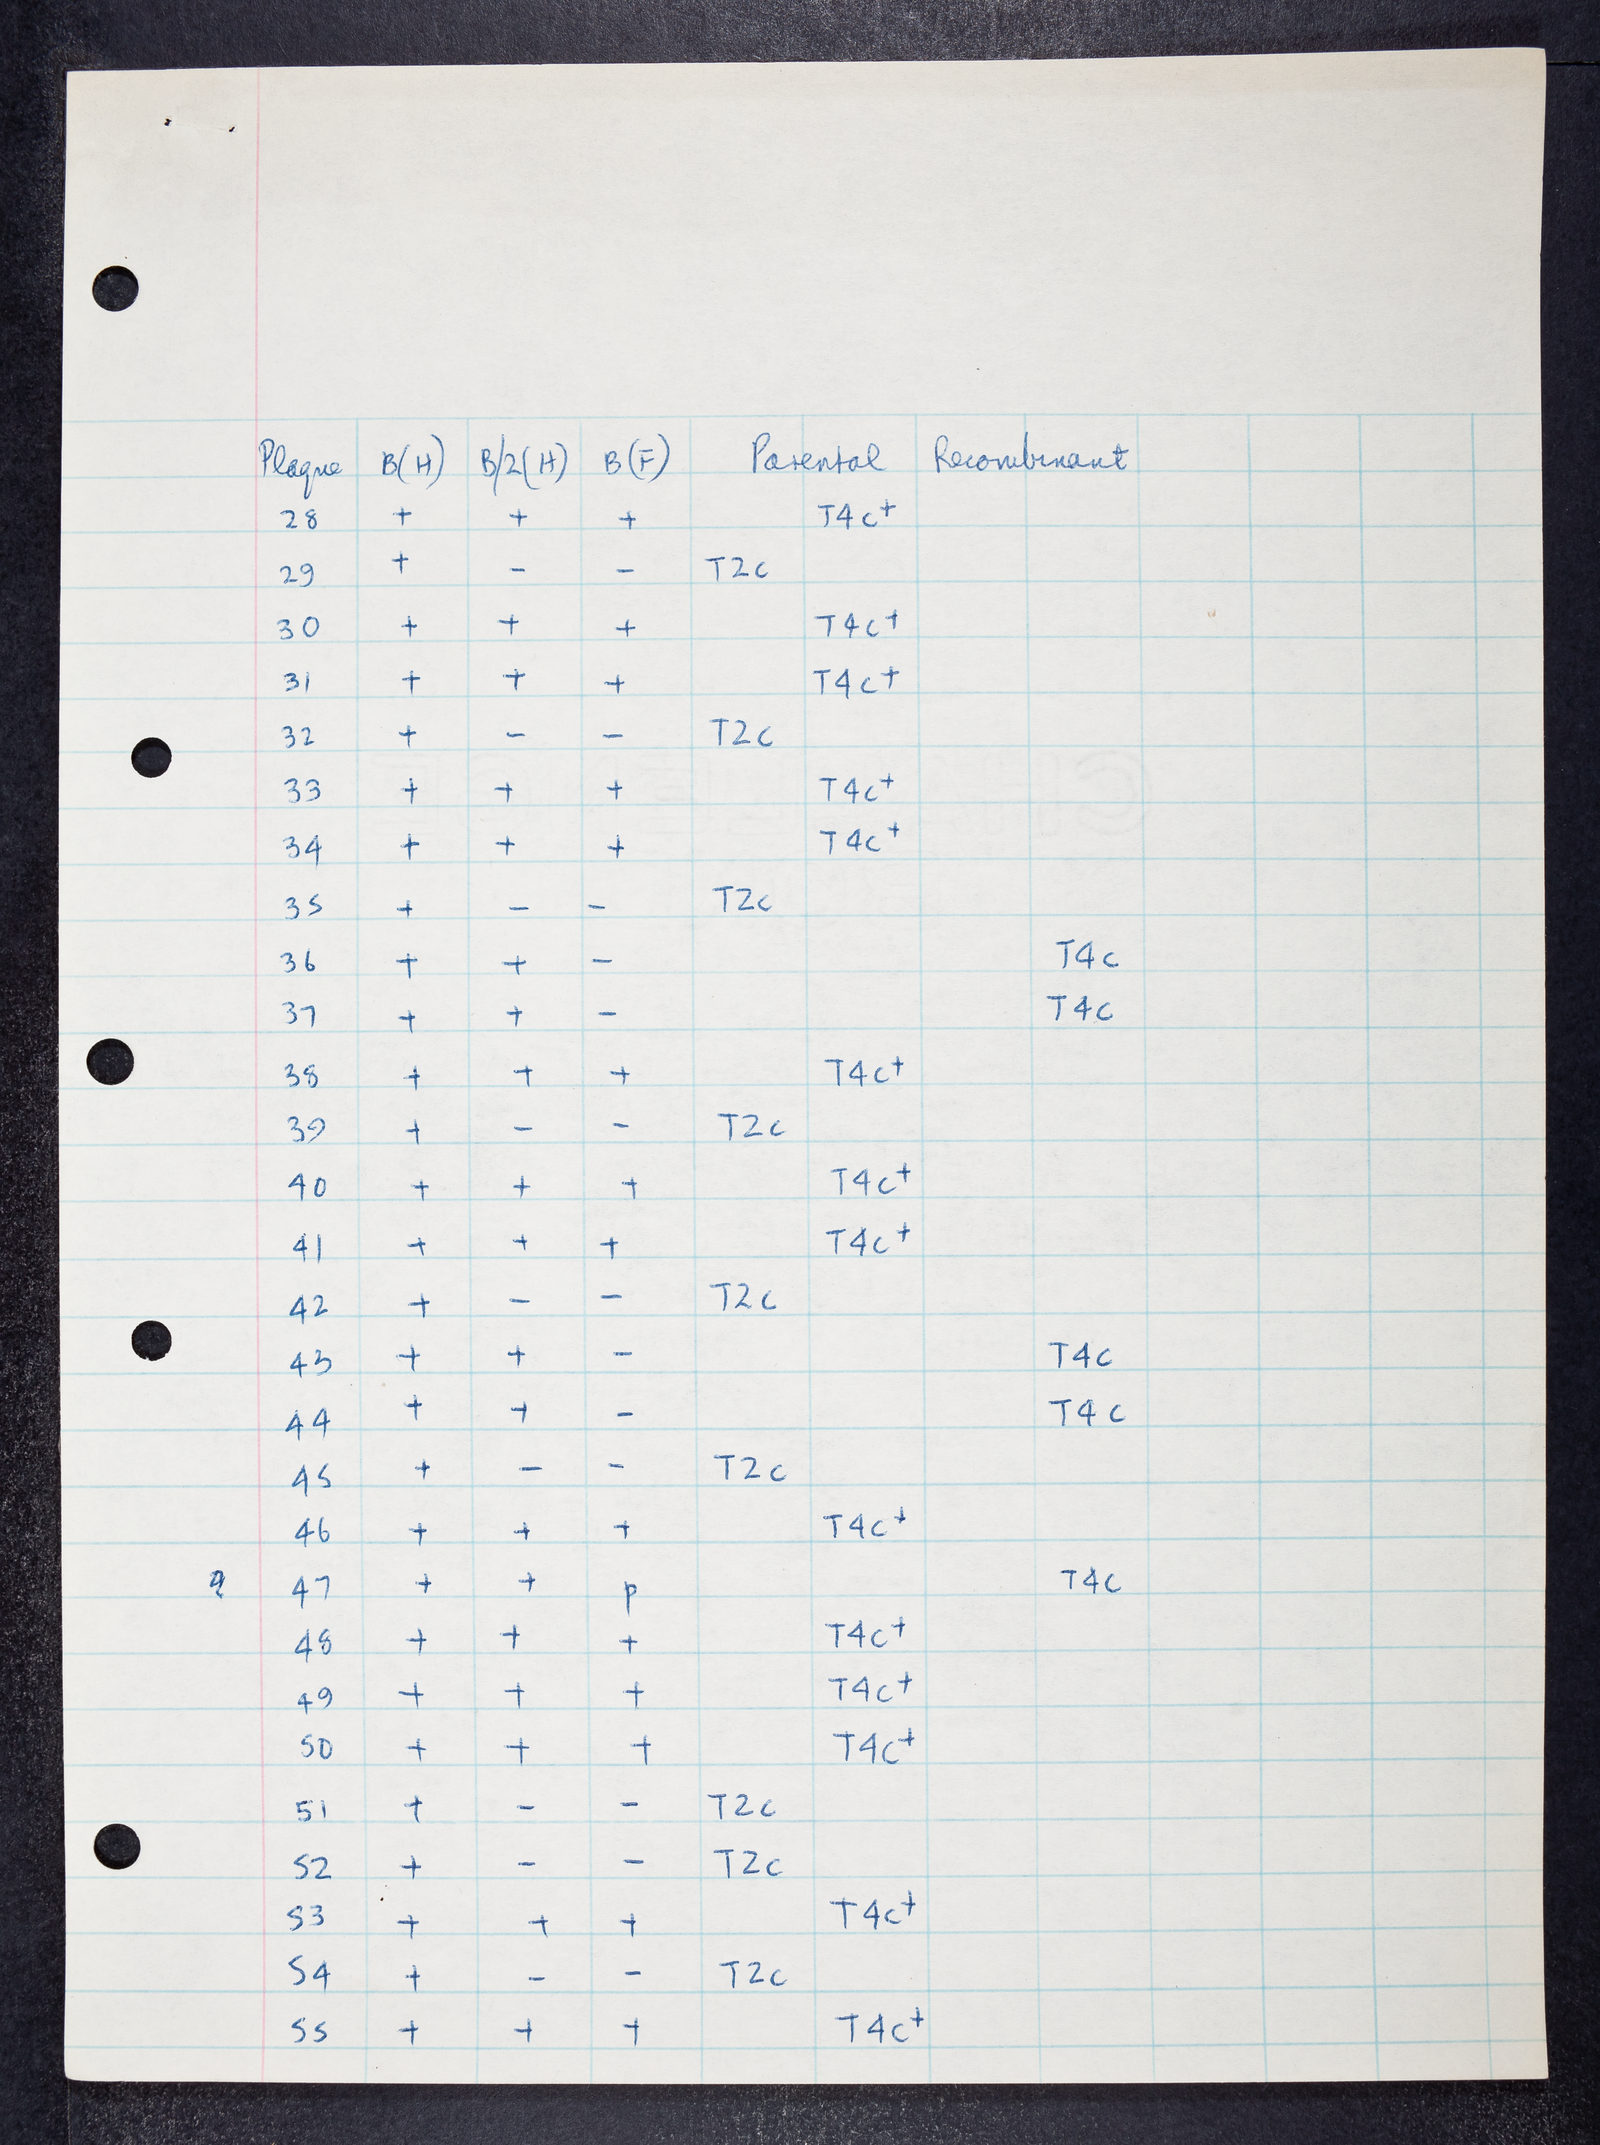 Plaque B(H) B/2(H) B(F) Parental Recombinant
28 + + + T4c+
29 + - - T2c
30 + + + T4c+
31 + + + T4c+
32 + - - T2c
33 + + + T4c+
34 + + + T4c+
35 + - - T2c
36 + + - T4c
37 + + - T4c
38 + + + T4c+
39 + - - T2c
40 + + + T4c+
41 + + + T4c+
42 + - - T2c
43 + + - T4c
44 + + - T4c
45 + - - T2c
46 + + + T4c+
? 47 + + p T4c
48 + + + T4c+
49 + + + T4c+
50 + + + T4c+
51 + - - T2c
52 + - - T2c
53 + + + T4c+
54 + - - T2c
55 + + + T4c+